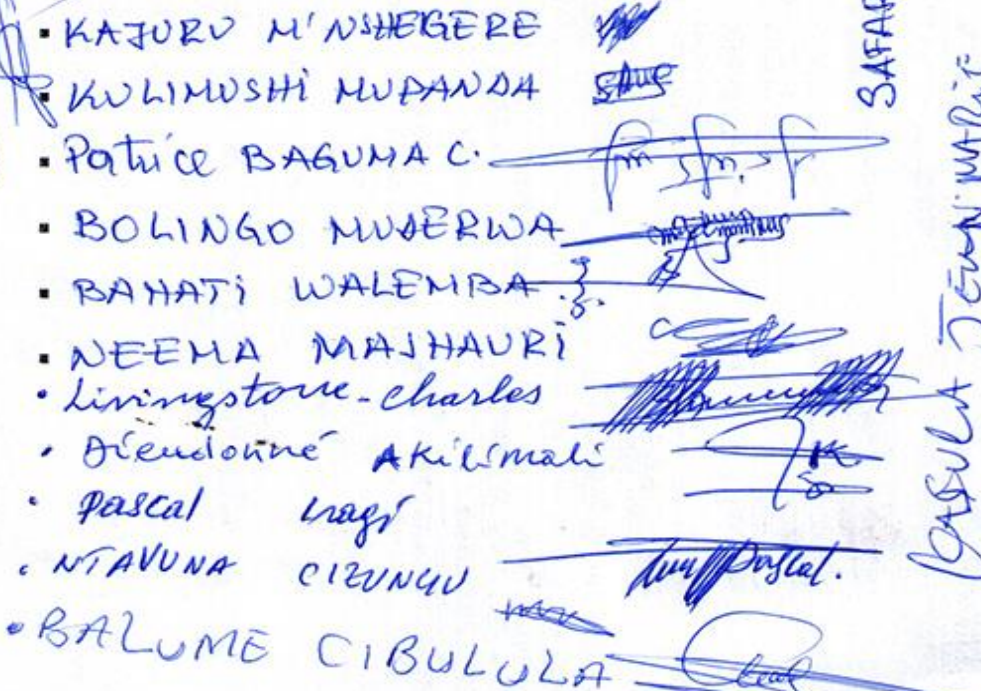 ▪ KAJURU M'NSHEGERE
▪ KULIMUSHi MUPANDA
▪ Patrice BAGUMA C.
▪ BOLINGO MUDERWA
▪ BAHATi WALEMBA
▪ NEEMA MAJHAURi
• Livingstone-Charles
• Dieudonné AKilimali
• Pascal
• NTAVUNA CIZUNGU
Pascal.
• BALUME CIBULULA
SAFAR